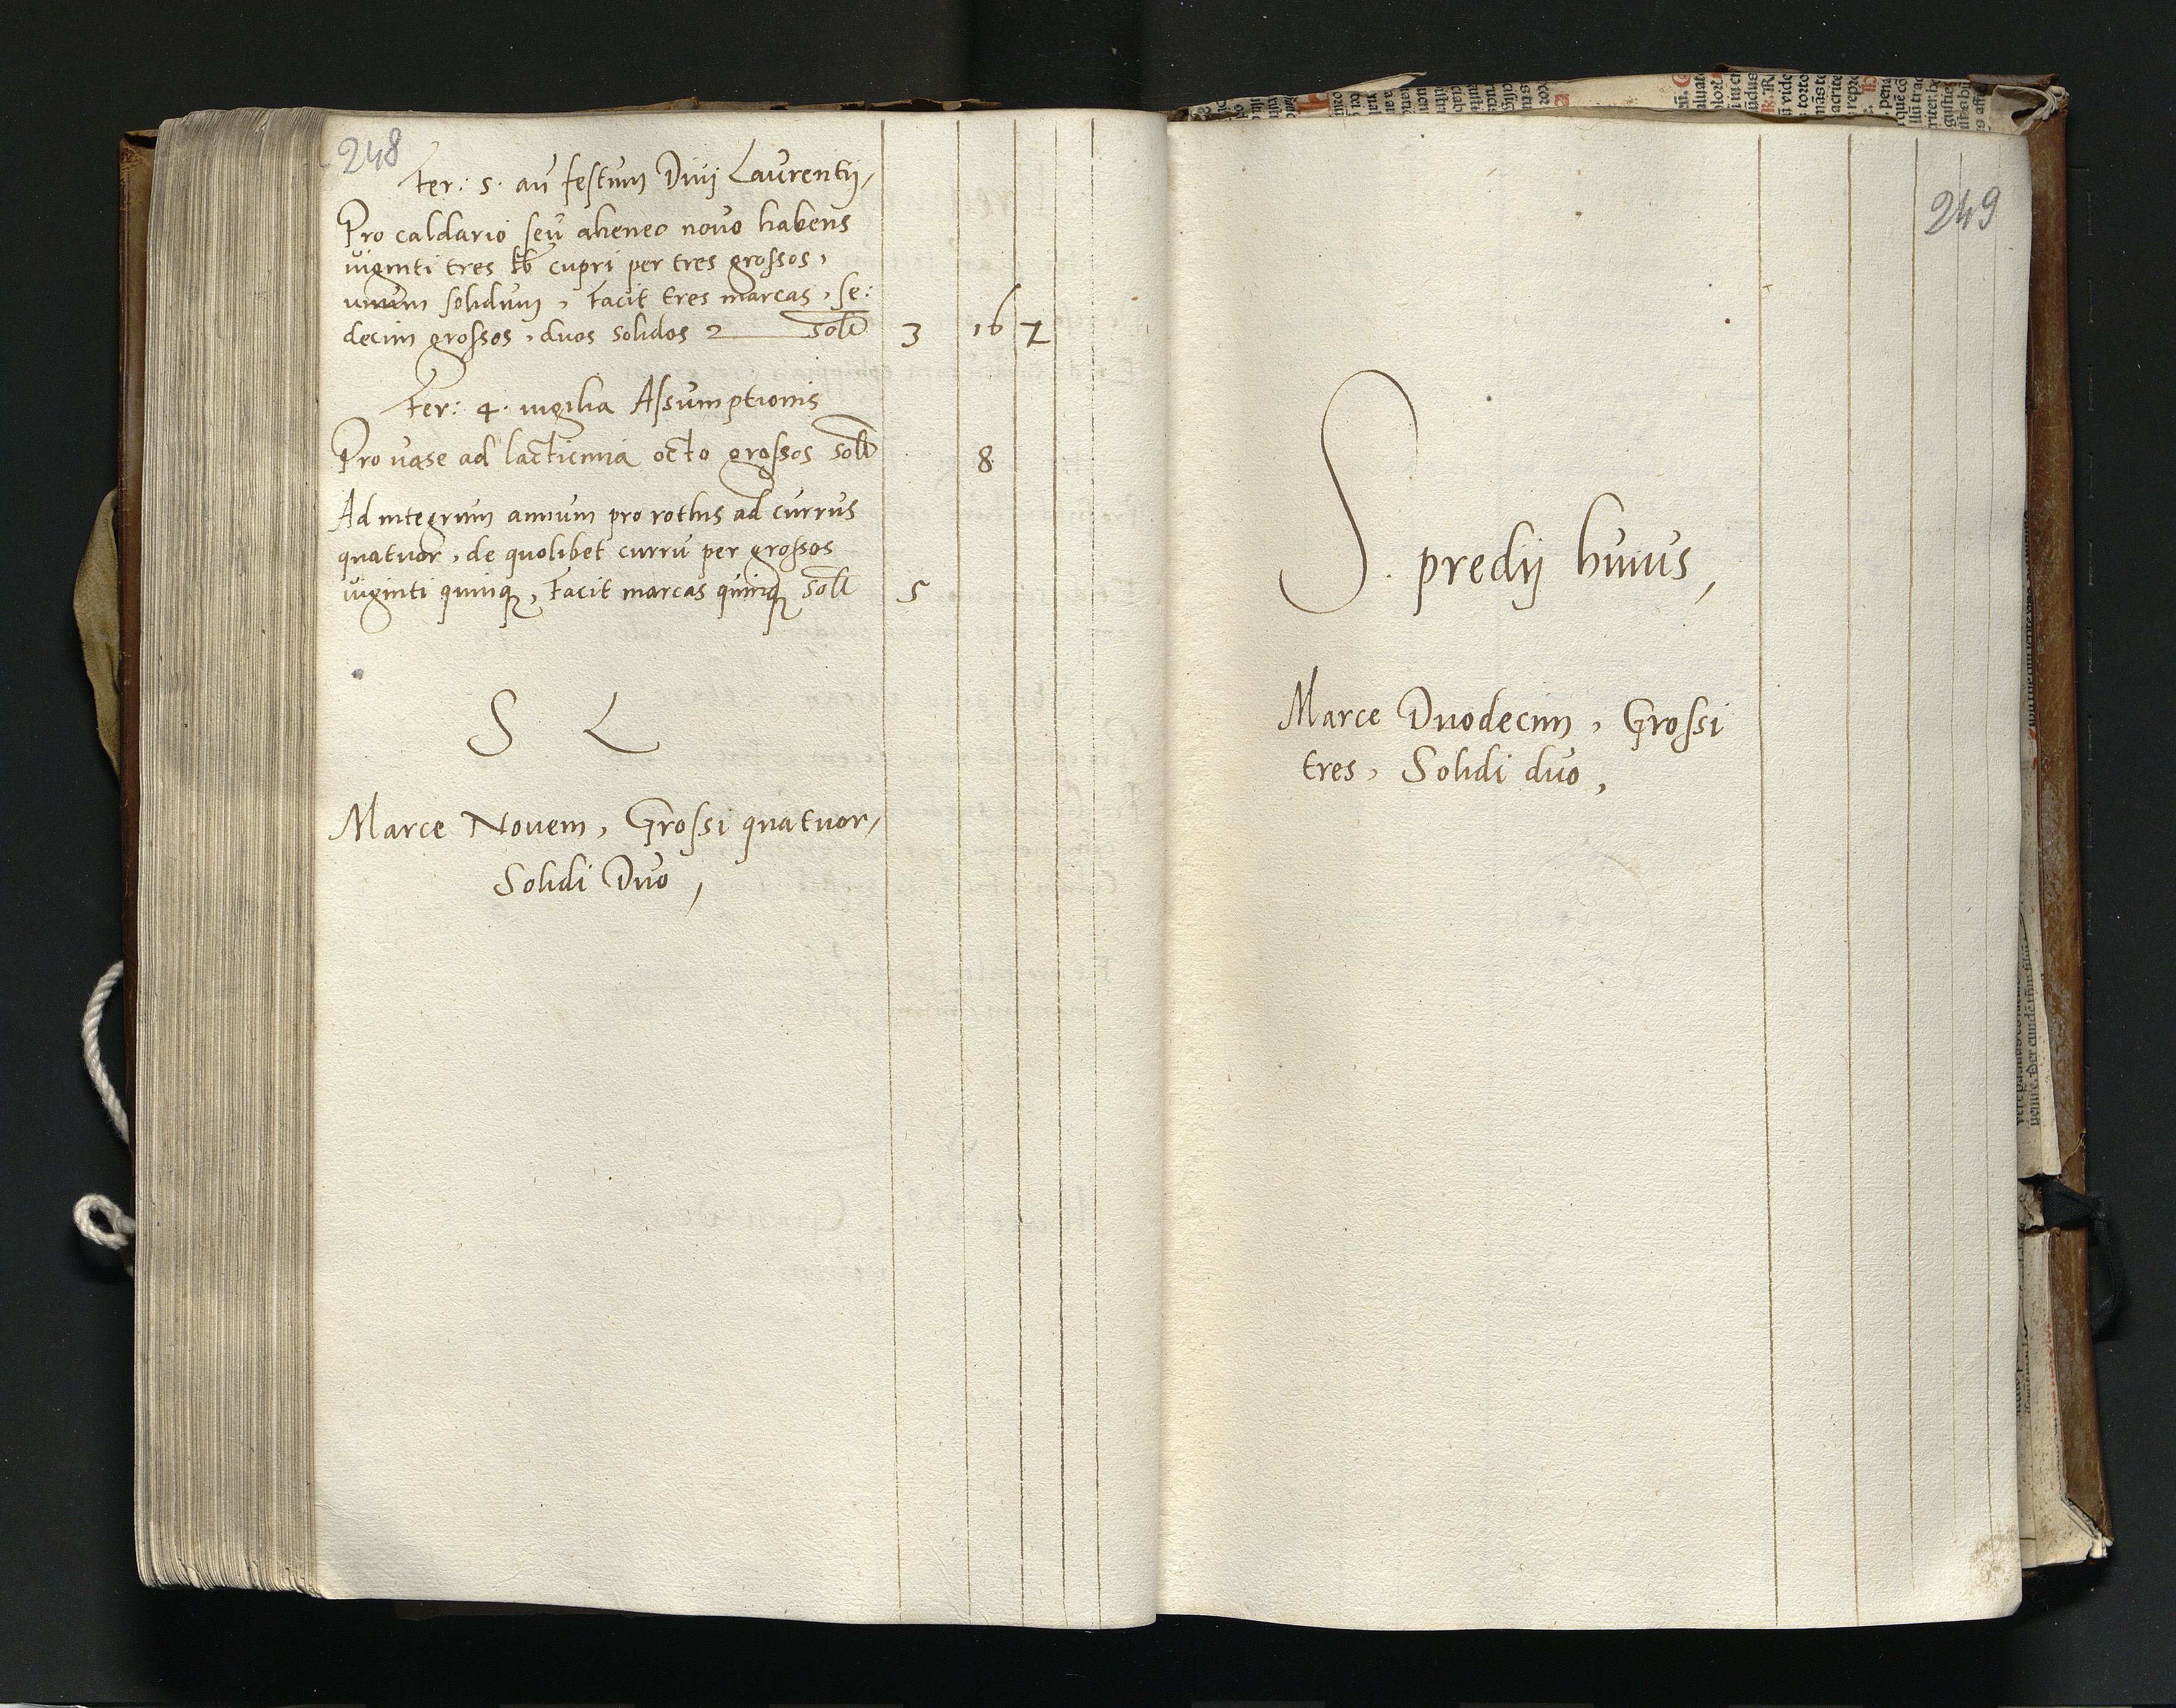 248
Fer: 5. an festum Divi Laurentii,
Pro caldario seu aheneo novo habens
viginti tres lb cupri per tres grossos,
unum solidum, facit tres marcas, se:
decim grossos, duos solidos 2 sol 3 16 2
Fer: 4. vigilia Assumptionis
Pro vase ad lacticinia octo grossos sol 8
Ad integrum annum pro rothis ad currus
quatuor, de quolibet curru per grossos
viginti quinq, facit marcas quinq sol 5
S L
Marce Novem, Grossi quatuor,
Solidi Duo,
249
S. predii huius,
Marce Duodecim, Grossi
tres, Solidi duo,